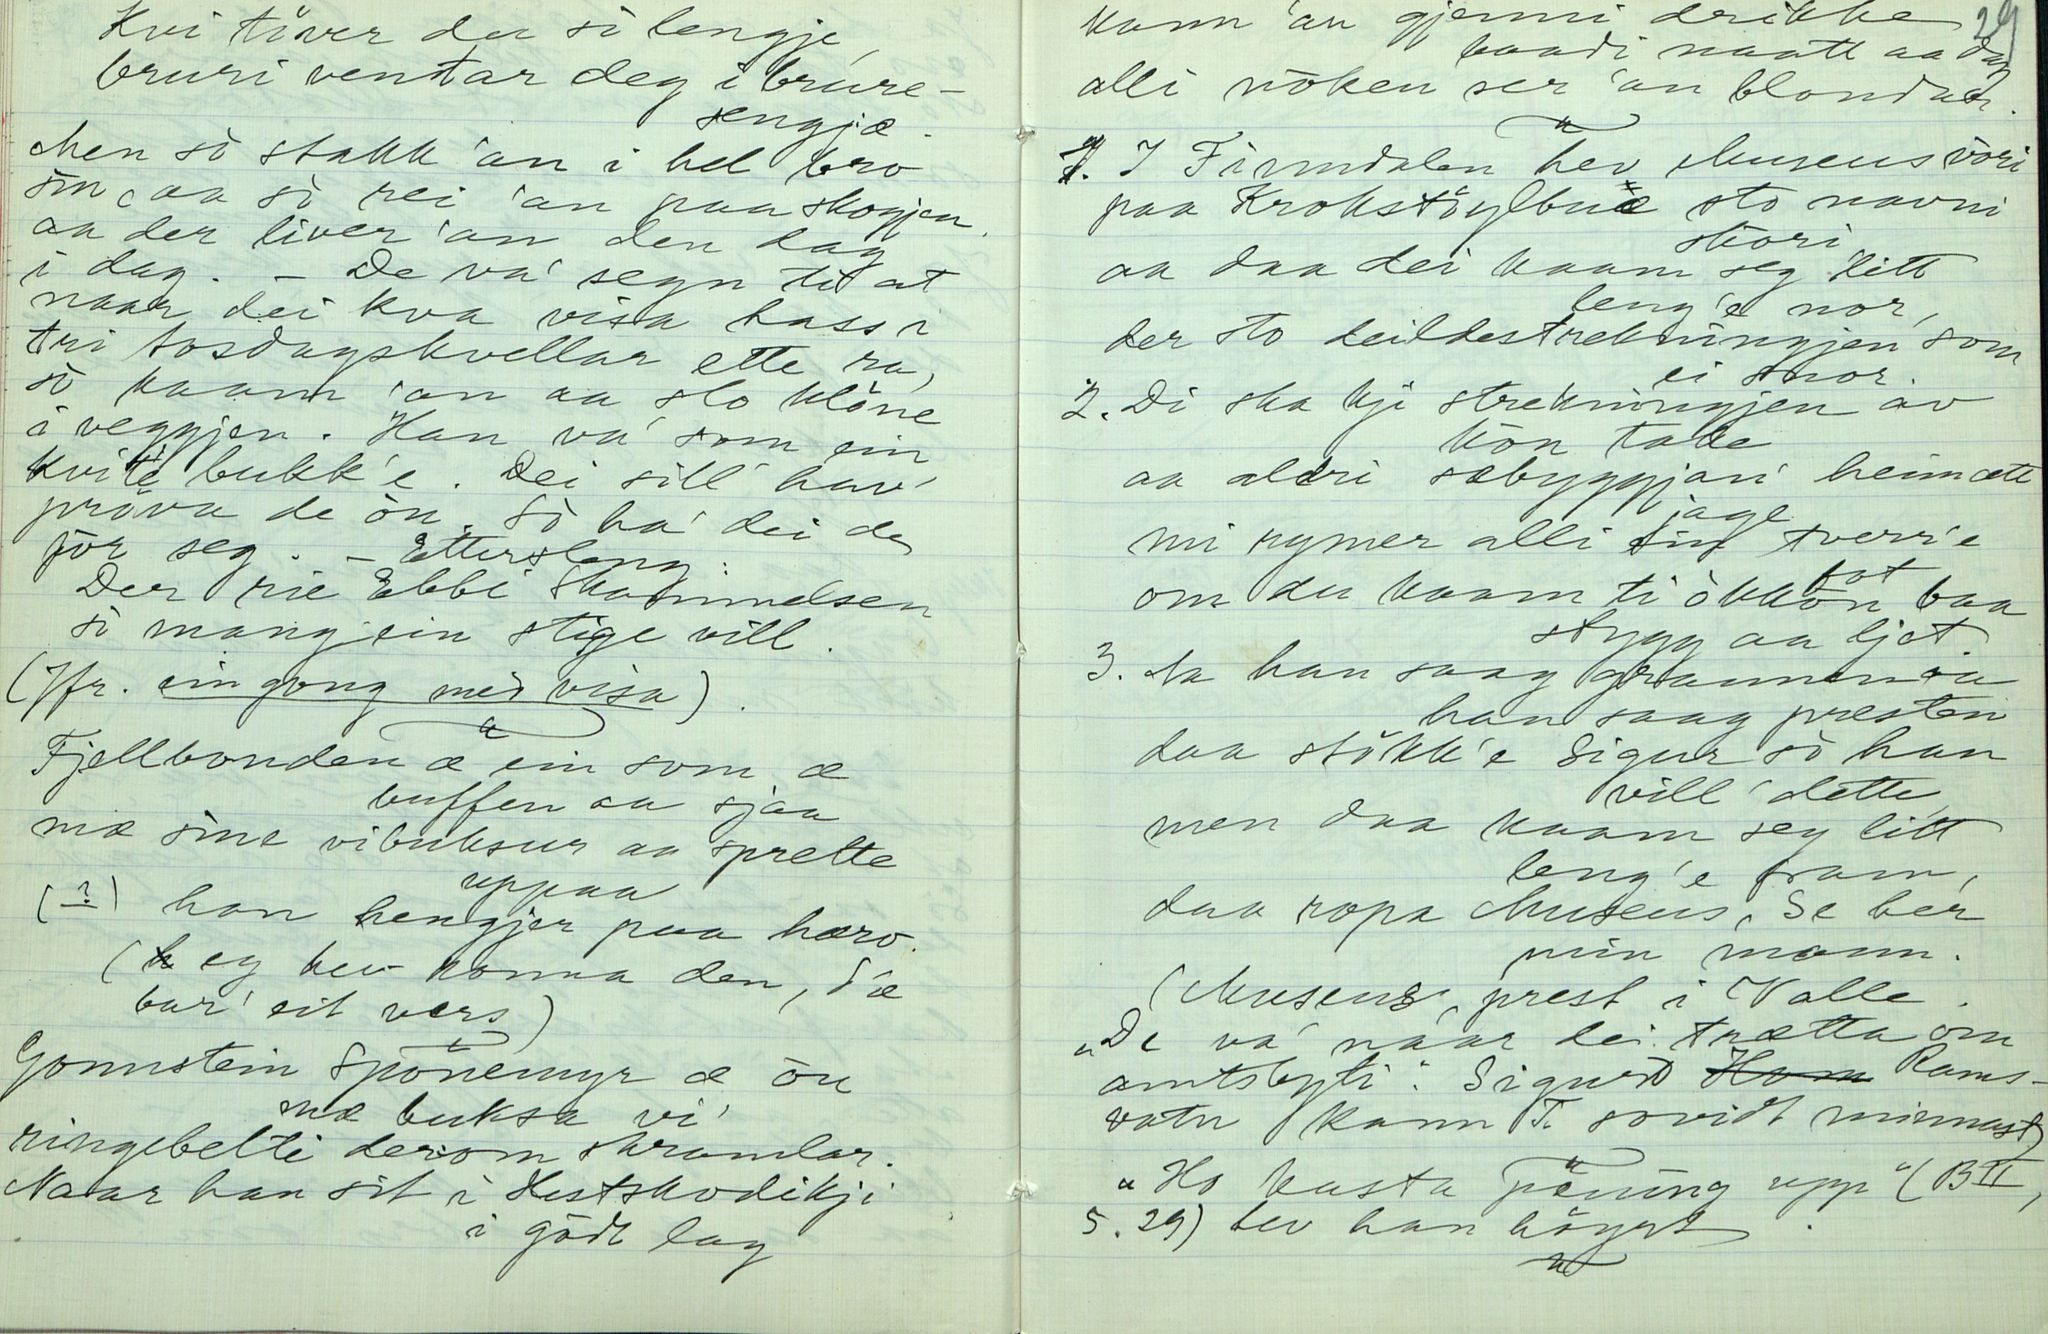 Kvi tøver du sò lengje,
bruri ventar deg i brure-
sengjæ.
Men sò stakk 'an i hel bro
sin, aa sò rei 'an paa skogjen,
aa der liver 'an den dag
i dag. – De va' segn til at
naar dei kva visa hass i
tri tosdagskvellar ette ra,
sò kaam 'an aa slo klône
i veggjen. Han va' som ein
kvite bukk'e. Dei sill' hav'
prøva de òn. Sò ha' dei de
för seg. – Ettersleng:
Der rie Ebbi Skammelsen
sò mang ein stige vill.
(Jfr. eingong med visa).
Fjellbonden æ ein som æ
buffen aa sjaa
mæ sine vibuksur aa sprette
uppaa
(?) han hengjer paa hærv.
(eg hev konna den, d'æ
bar' eit vers)
Gonnstein Spònemyr æ òn
mæ buksa vi'
ringebelti derom skramlar.
Naar han sit i Hestskodikji
i gôdt lag
29
kann 'an gjenni drikke
baadi naatt aa dag
alli nòken ser 'an blondar.
1. I Finndalen hev Museus vòri
paa Krokstöylbuæ sto navni
stòri
aa daa dei kaam seg litt
leng'e nor,
der sto deildestrekningjen som
ei snor.
2. Di ska kji strekningjen av
kòn take
aa aldri sæbyggjari heimatte
jage
mi rymer alli fot tverr'e
om du kaam ti òkkòn baa
stygg aa ljot.
3. Na han saag grannen aa
han saag presten
daa stökk'e Sigur sò han
vill' dette,
men daa kaam seg litt
leng'e fram,
daa ropa Museus, Se her
min mann.
(Museus, prest i Valle.
"De va' naar dei trætta om
amtsbyti". Sigurd Rams-
vatn kann T. sovidt minnast)
"Ho kasta pæning upp" (B II,
s. 29) hev han höyrt.